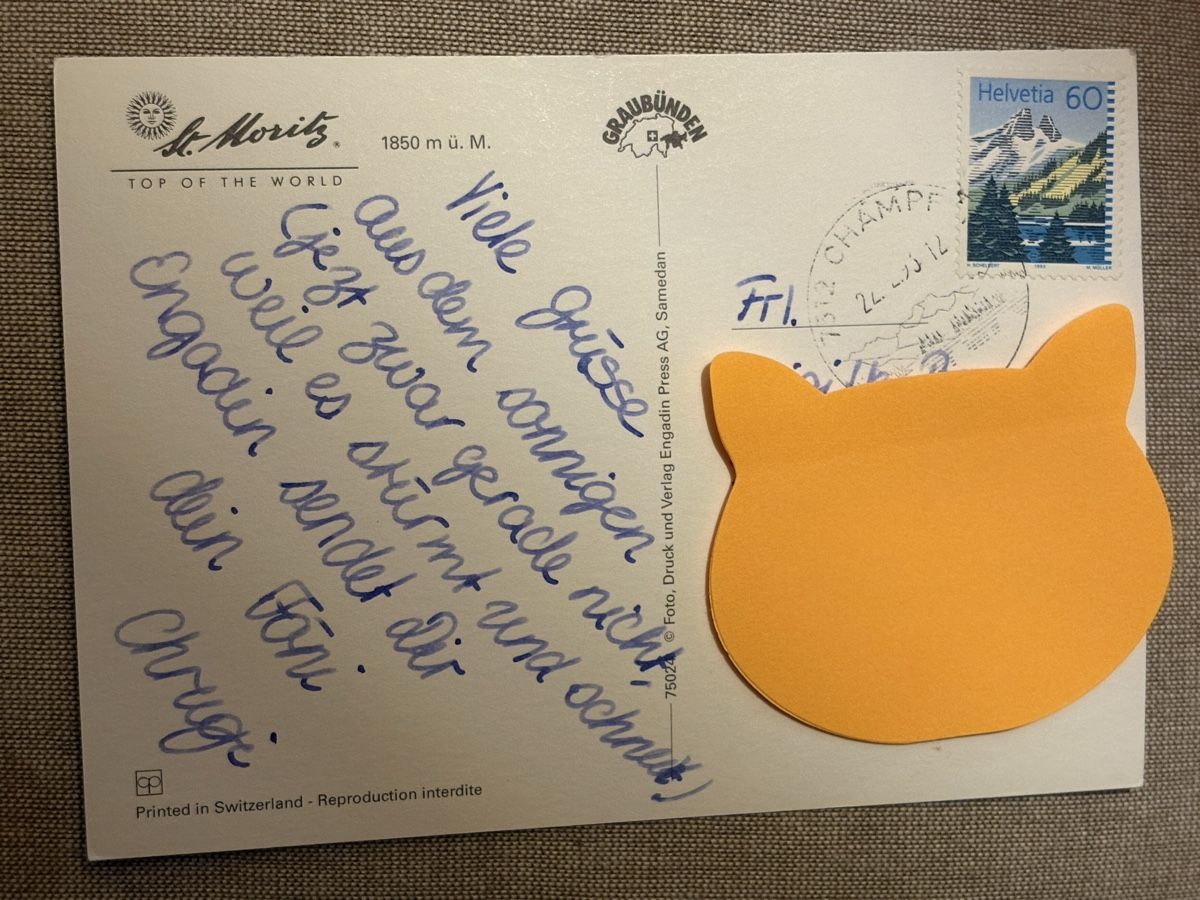 St. Moritz
TOP OF THE WORLD
1850 m ü. M.
GRAUBÜNDEN
Helvetia 60
H. SCHELBERT 1993 M. MÜLLER
7512 CHAMPF
22. 12
Viele Grüsse
aus dem sonnigen
(jezt zwar gerade nicht,
weil es stürmt und schneit)
Engadin sendet dir
dein Föni
Chrugi
Frl.
75024 © Foto, Druck und Verlag Engadin Press AG, Samedan
cp
Printed in Switzerland - Reproduction interdite